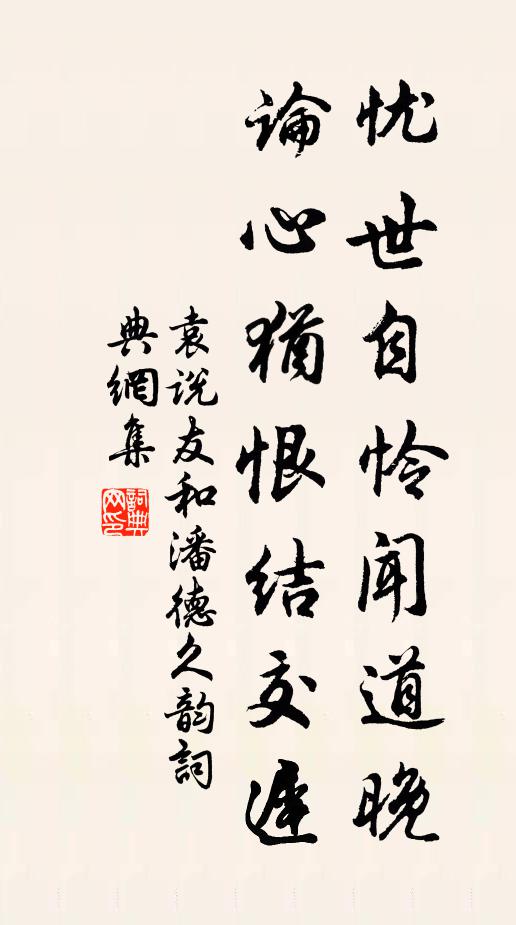 忧世自怜闻道晚
論心猶恨结交遲
袁说友和潘德久韵詞
典網集
詞典网印